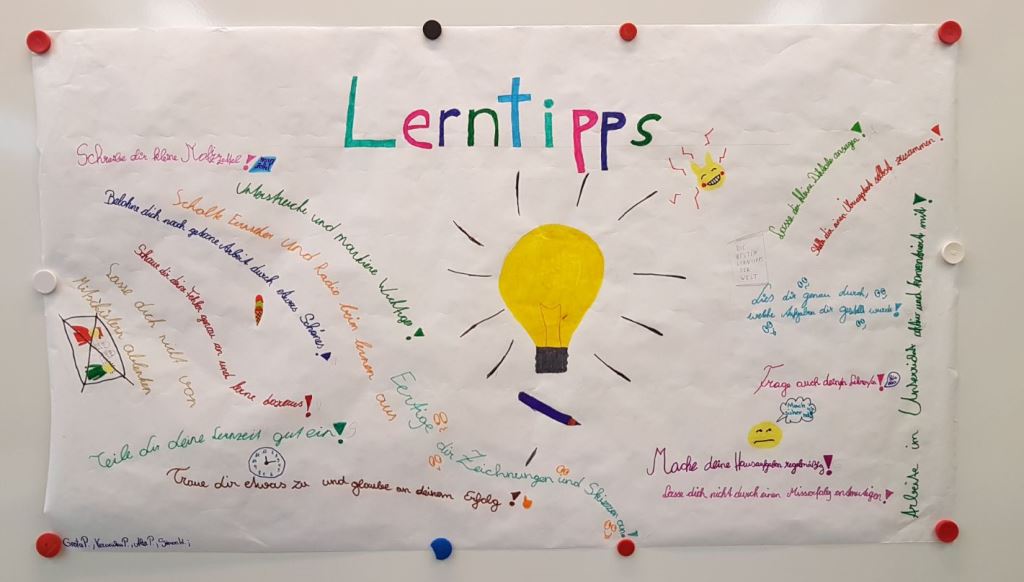 Lerntipps
Schreibe dir kleine Notizzettel!
Unterstreiche und markiere Wichtiges!
Schalte Fernseher und Radio beim lernen aus
Belohne dich nach getaner Arbeit durch etwas Schönes!
Schaue dir deine Fehler genau an und lerne daraus!
Lasse dich nicht von
Mitschülern ablenken
Teile dir deine Lernzeit gut ein!
Traue dir etwas zu und glaube an deinem Erfolg!
Fertige dir Zeichnungen und Skizzen an!
Lasse dir kleine Defizite anzeigen!
Stelle dir einen Übungstest selbst zusammen!
DIE
BESTEN
LERNTIPPS
DER
WELT
Lies dir genau durch,
welche Aufgaben dir gestellt wurde!
Frage auch deinen Lehrer!
Mach
Mache deine Hausaufgaben regelmäßig!
Lasse dich nicht durch einen Misserfolg entmutigen!
Arbeite im Unterricht aktiv und konzentriert mit!
Greta P.